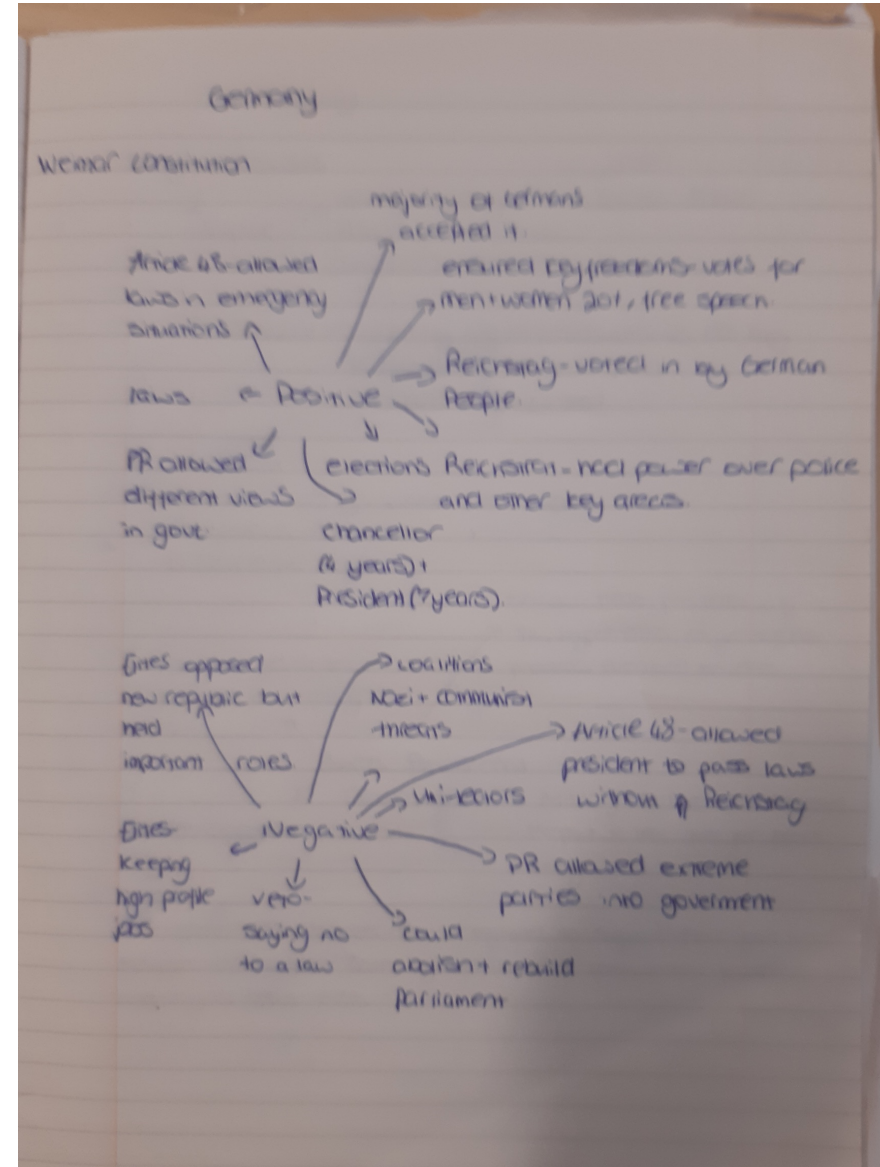 Germany
Weimar constitution
majority of Germans
accepted it.
Article 48-allowed
laws in emergency
situations
ensured key freedoms- votes for
men+women 20+, free speech.
Reichstag-voted in by German
People.
laws
Positive
PR allowed
different views
in govt
elections
Reichsrath-had power over police
and other key areas.
chancellor
(4 years)+
President (7years).
Elites opposed
new republic but
had
important roles
coalitions
Nazi+ communist
threats
Article 48-allowed
president to pass laws
without Reichstag
Negative
Elites-
keeping
high profile
jobs
veto-
saying no
to a law
could
abolish+ rebuild
Parliament
PR allowed extreme
parties into goverment